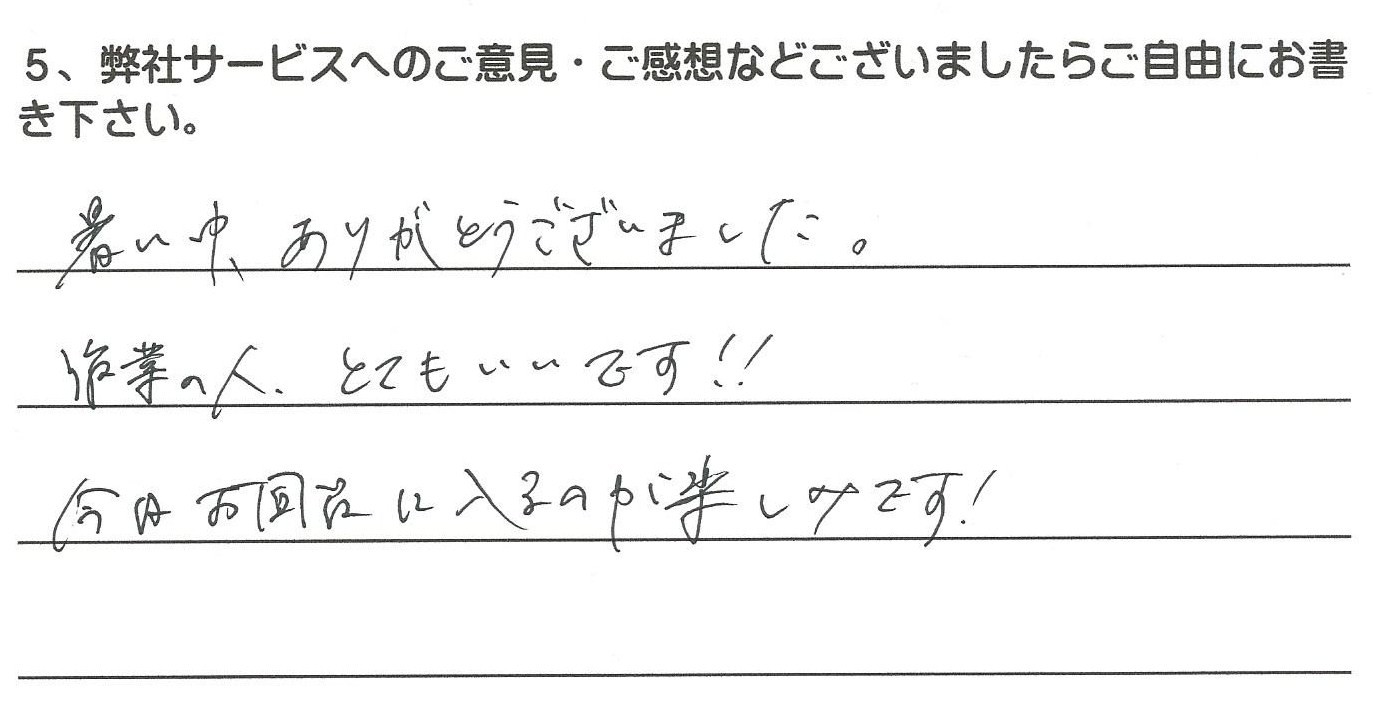 5、弊社サービスへのご意見・ご感想などございましたらご自由にお書
き下さい。
暑い中、ありがとうございました。
作業の人、とてもいいです!!
今日お風呂に入るのが楽しみです!